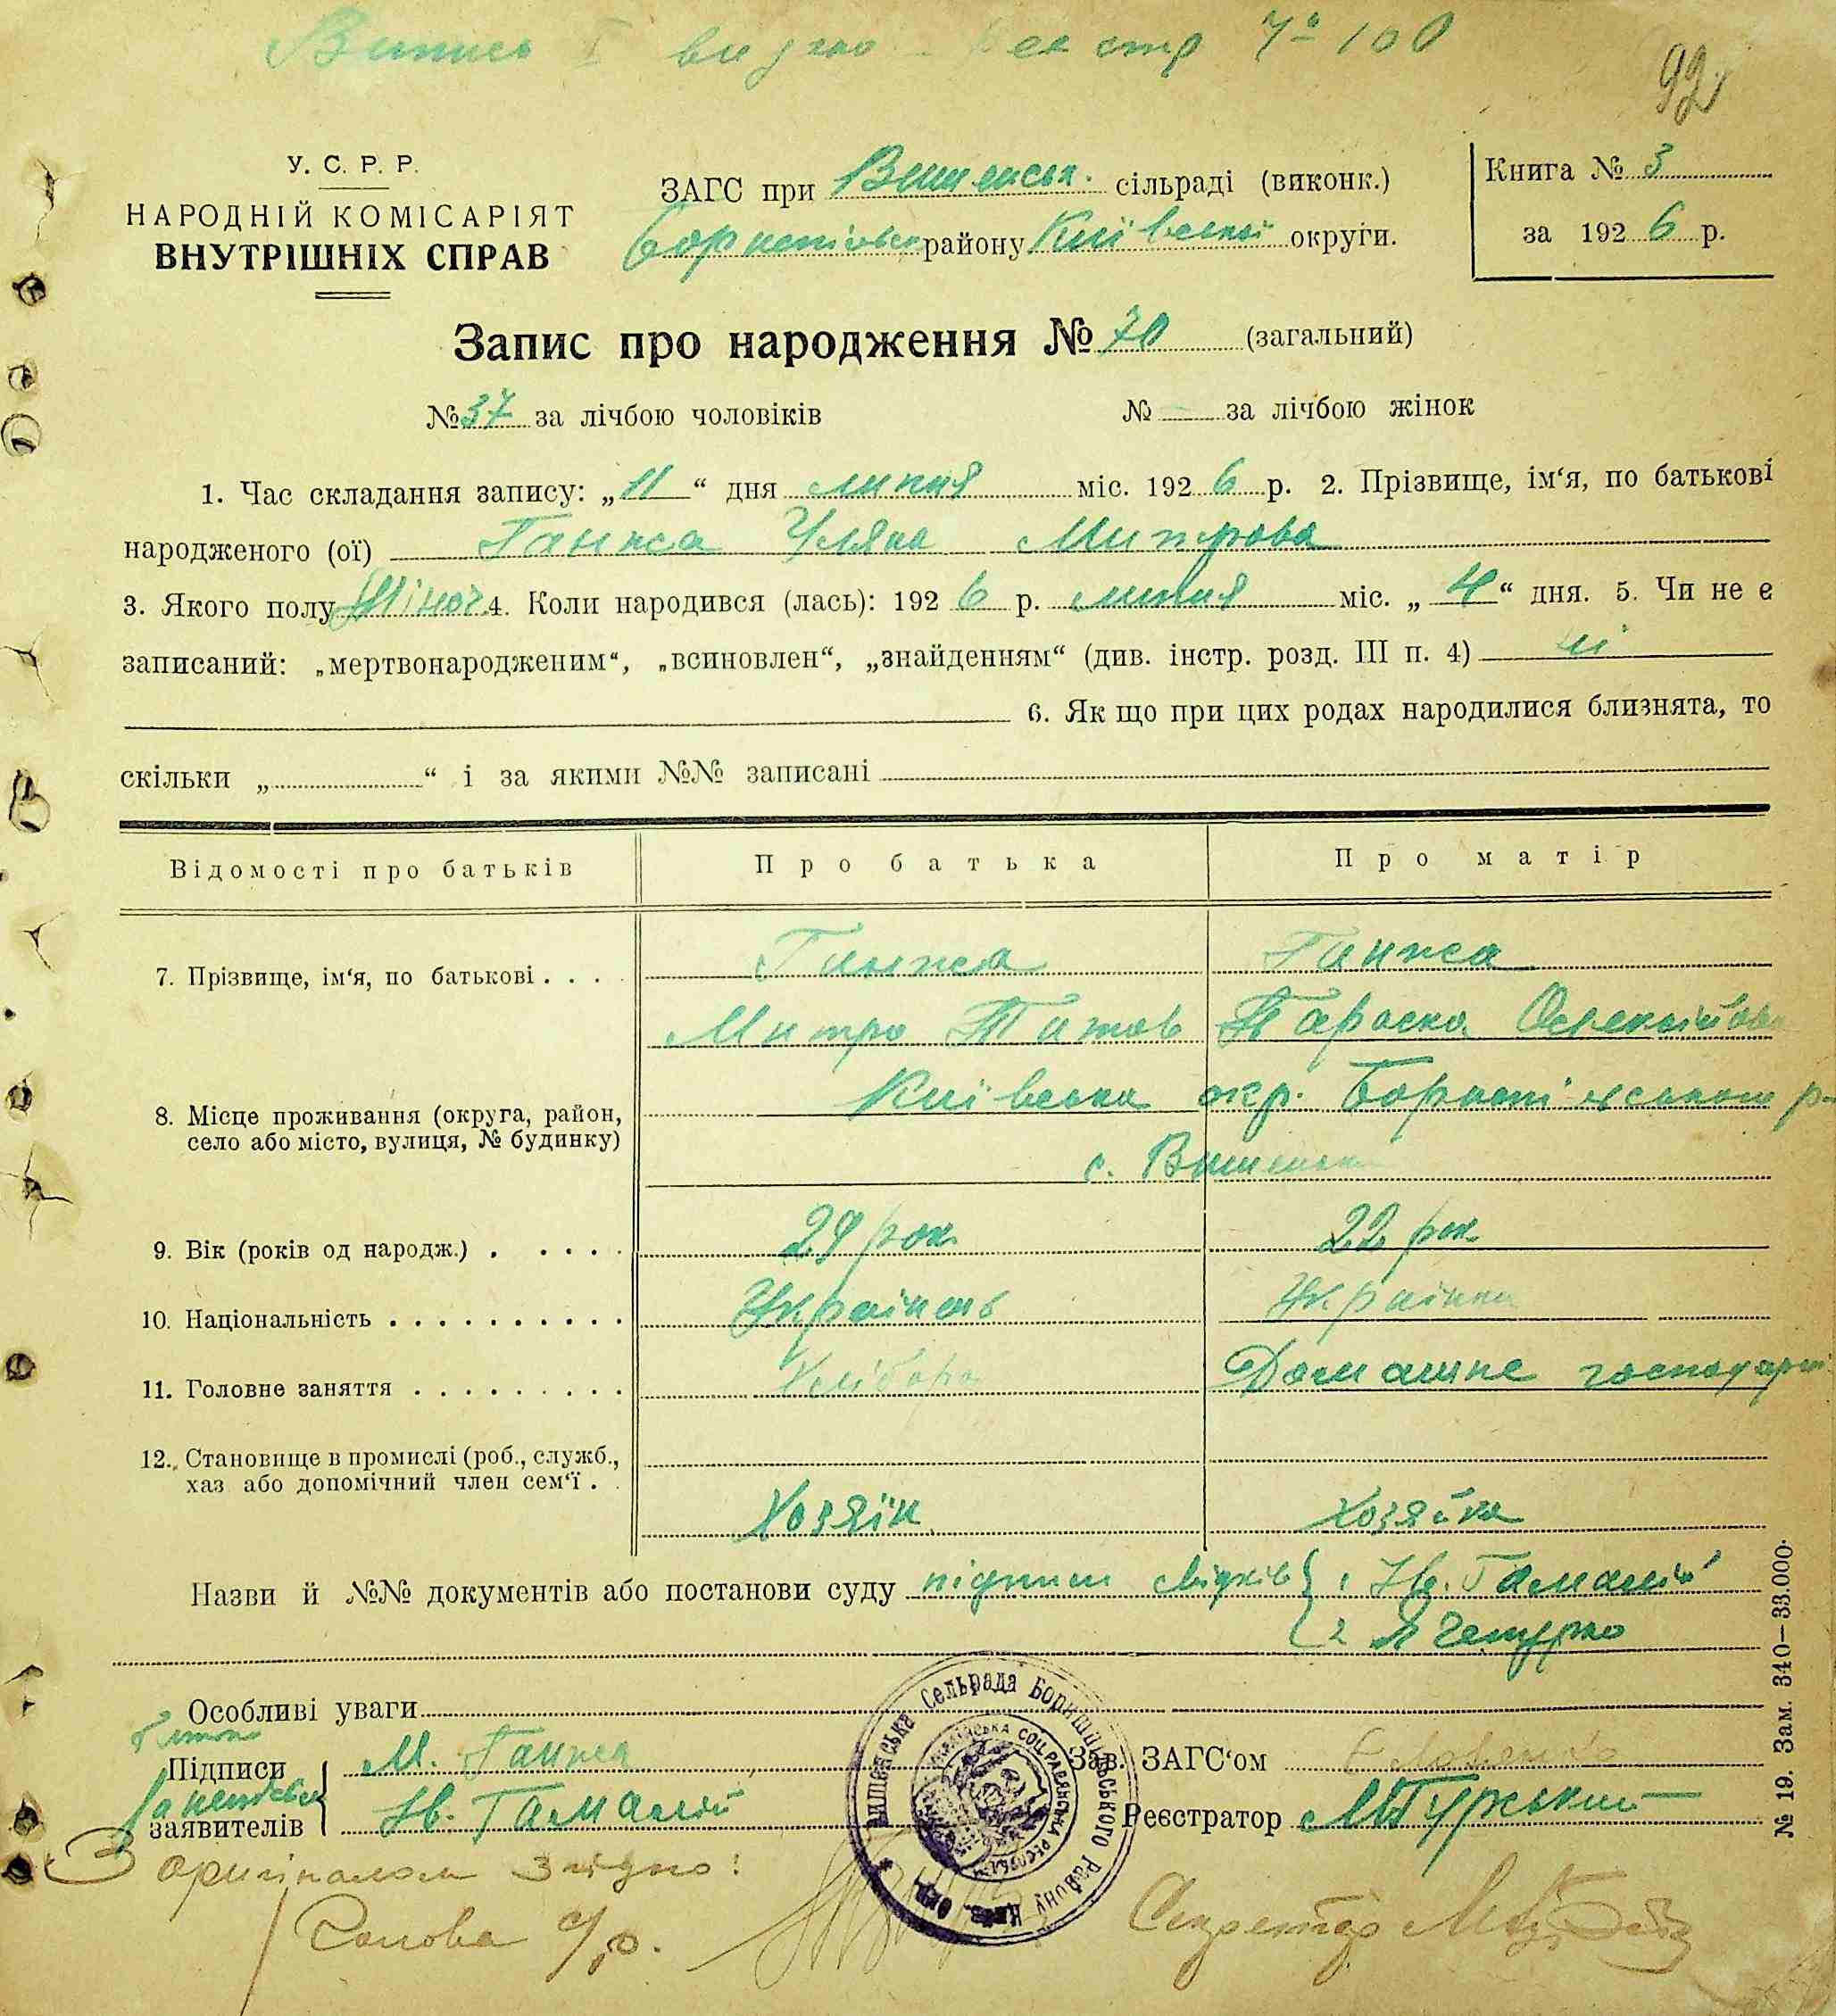 Випись I видано Реєстр № 100
92
У. С. Р. Р.
НАРОДНІЙ КОМІСАРІЯТ
ВНУТРІШНІХ СПРАВ
ЗАГС при Вишенськ. сільраді (виконк.)
Бориспільськ району Київської округи.
Книга № 3
за 1926 р.
Запис про народження № 70 (загальний)
№ 37 за лічбою чоловіків № — за лічбою жінок
1. Час складання запису: „11“ дня липня міс. 1926 р. 2. Прізвище, ім‘я, по батькові
народженого (ої) Ганжа Уляна Митрова
3. Якого полу Жіноч 4. Коли народився (лась): 1926 р. липня міс. „4“ дня. 5. Чи не є
записаний: „мертвонародженим“, „всиновлен“, „знайденням“ (див. інстр. розд. III п. 4) ні
6. Як що при цих родах народилися близнята, то
скільки „ “ і за якими №№ записані
Відомості про батьків Про батька Про матір
7. Прізвище, ім‘я, по батькові . . . . Ганжа Ганжа
Митро Титов Параска
8. Місце проживання (округа, район, Київська окр. Бориспільського р-
село або місто, вулиця, № будинку) с. Вишеньки
9. Вік (років од народж.) . . . . . 29 рок 22 рок
10. Національність . . . . . . . . . . Українець Українка
11. Головне заняття . . . . . . . . . Хлібороб Домашнє господар
12. Становище в промислі (роб., служб.,
хаз або допомічний член сем‘ї . .
Хозяїн Хозяйка
Назви й №№ документів або постанови суду підписи свідків 1 Ів. Гамалій
2
Особливі уваги
Батько
Підписи М. Ганжа Зав. ЗАГС‘ом
заявителів Ів. Гамалій Реєстратор
Вишенська Сельрада Бориспільського Району Київ. Окр.
УКРАЇНСЬКА СОЦ РАДЯНСЬКА РЕСПУБЛІКА
№ 19. Зам. 340—33.000.
З оригіналом згідно:
Голова с/р. Секретар